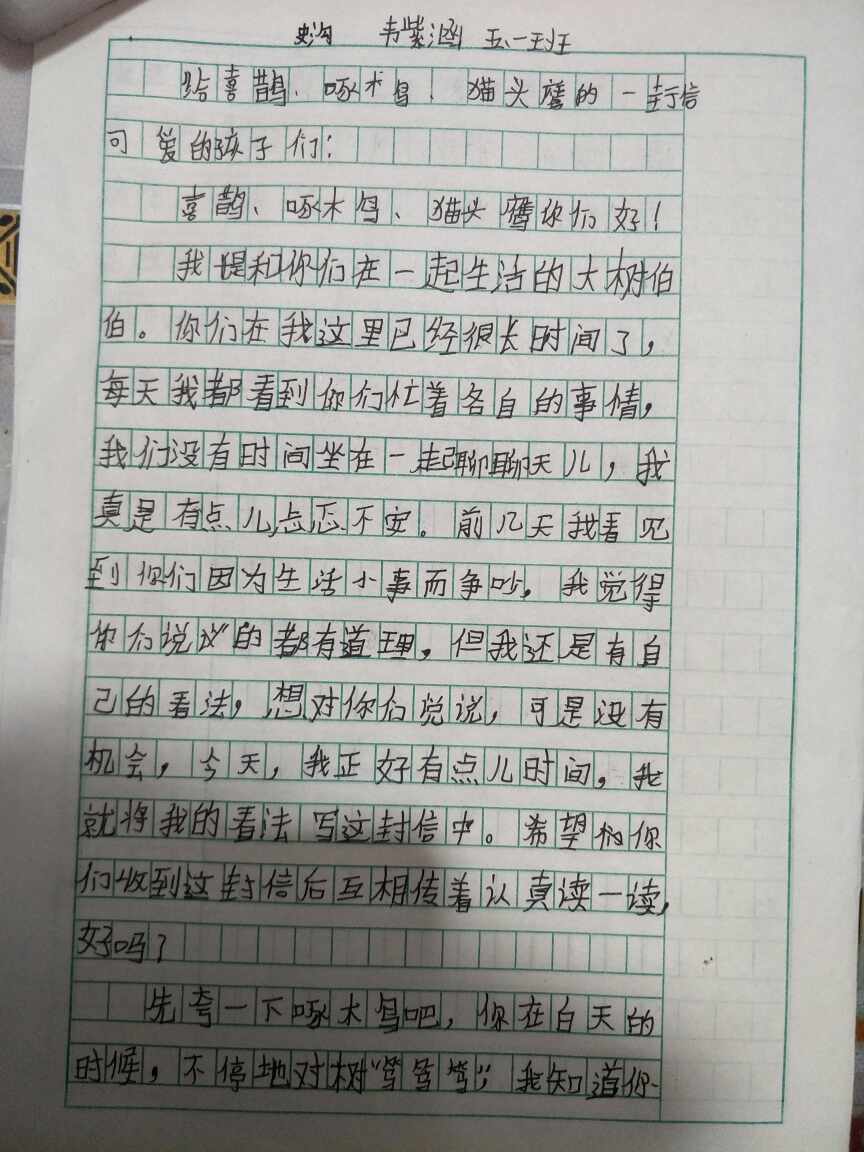 史沟 韦紫涵 五.一班
给喜鹊、啄木鸟、猫头鹰的一封信
可爱的孩子们：
喜鹊、啄木鸟、猫头鹰你们好！
我是和你们在一起生活的大树伯
伯。你们在我这里已经很长时间了，
每天我都看到你们忙着各自的事情，
我们没有时间坐在一起聊聊天儿，我
真是有点儿忐忑不安。前几天我看见
到你们因为生活小事而争吵，我觉得
你们说的都有道理，但我还是有自
己的看法，想对你们说说，可是没有
机会，今天，我正好有点儿时间，我
就将我的看法写这封信中。希望你
们收到这封信后互相传着认真读一读，
好吗？
先夸一下啄木鸟吧，你在白天的
时候，不停地对树“笃笃笃”，我知道你